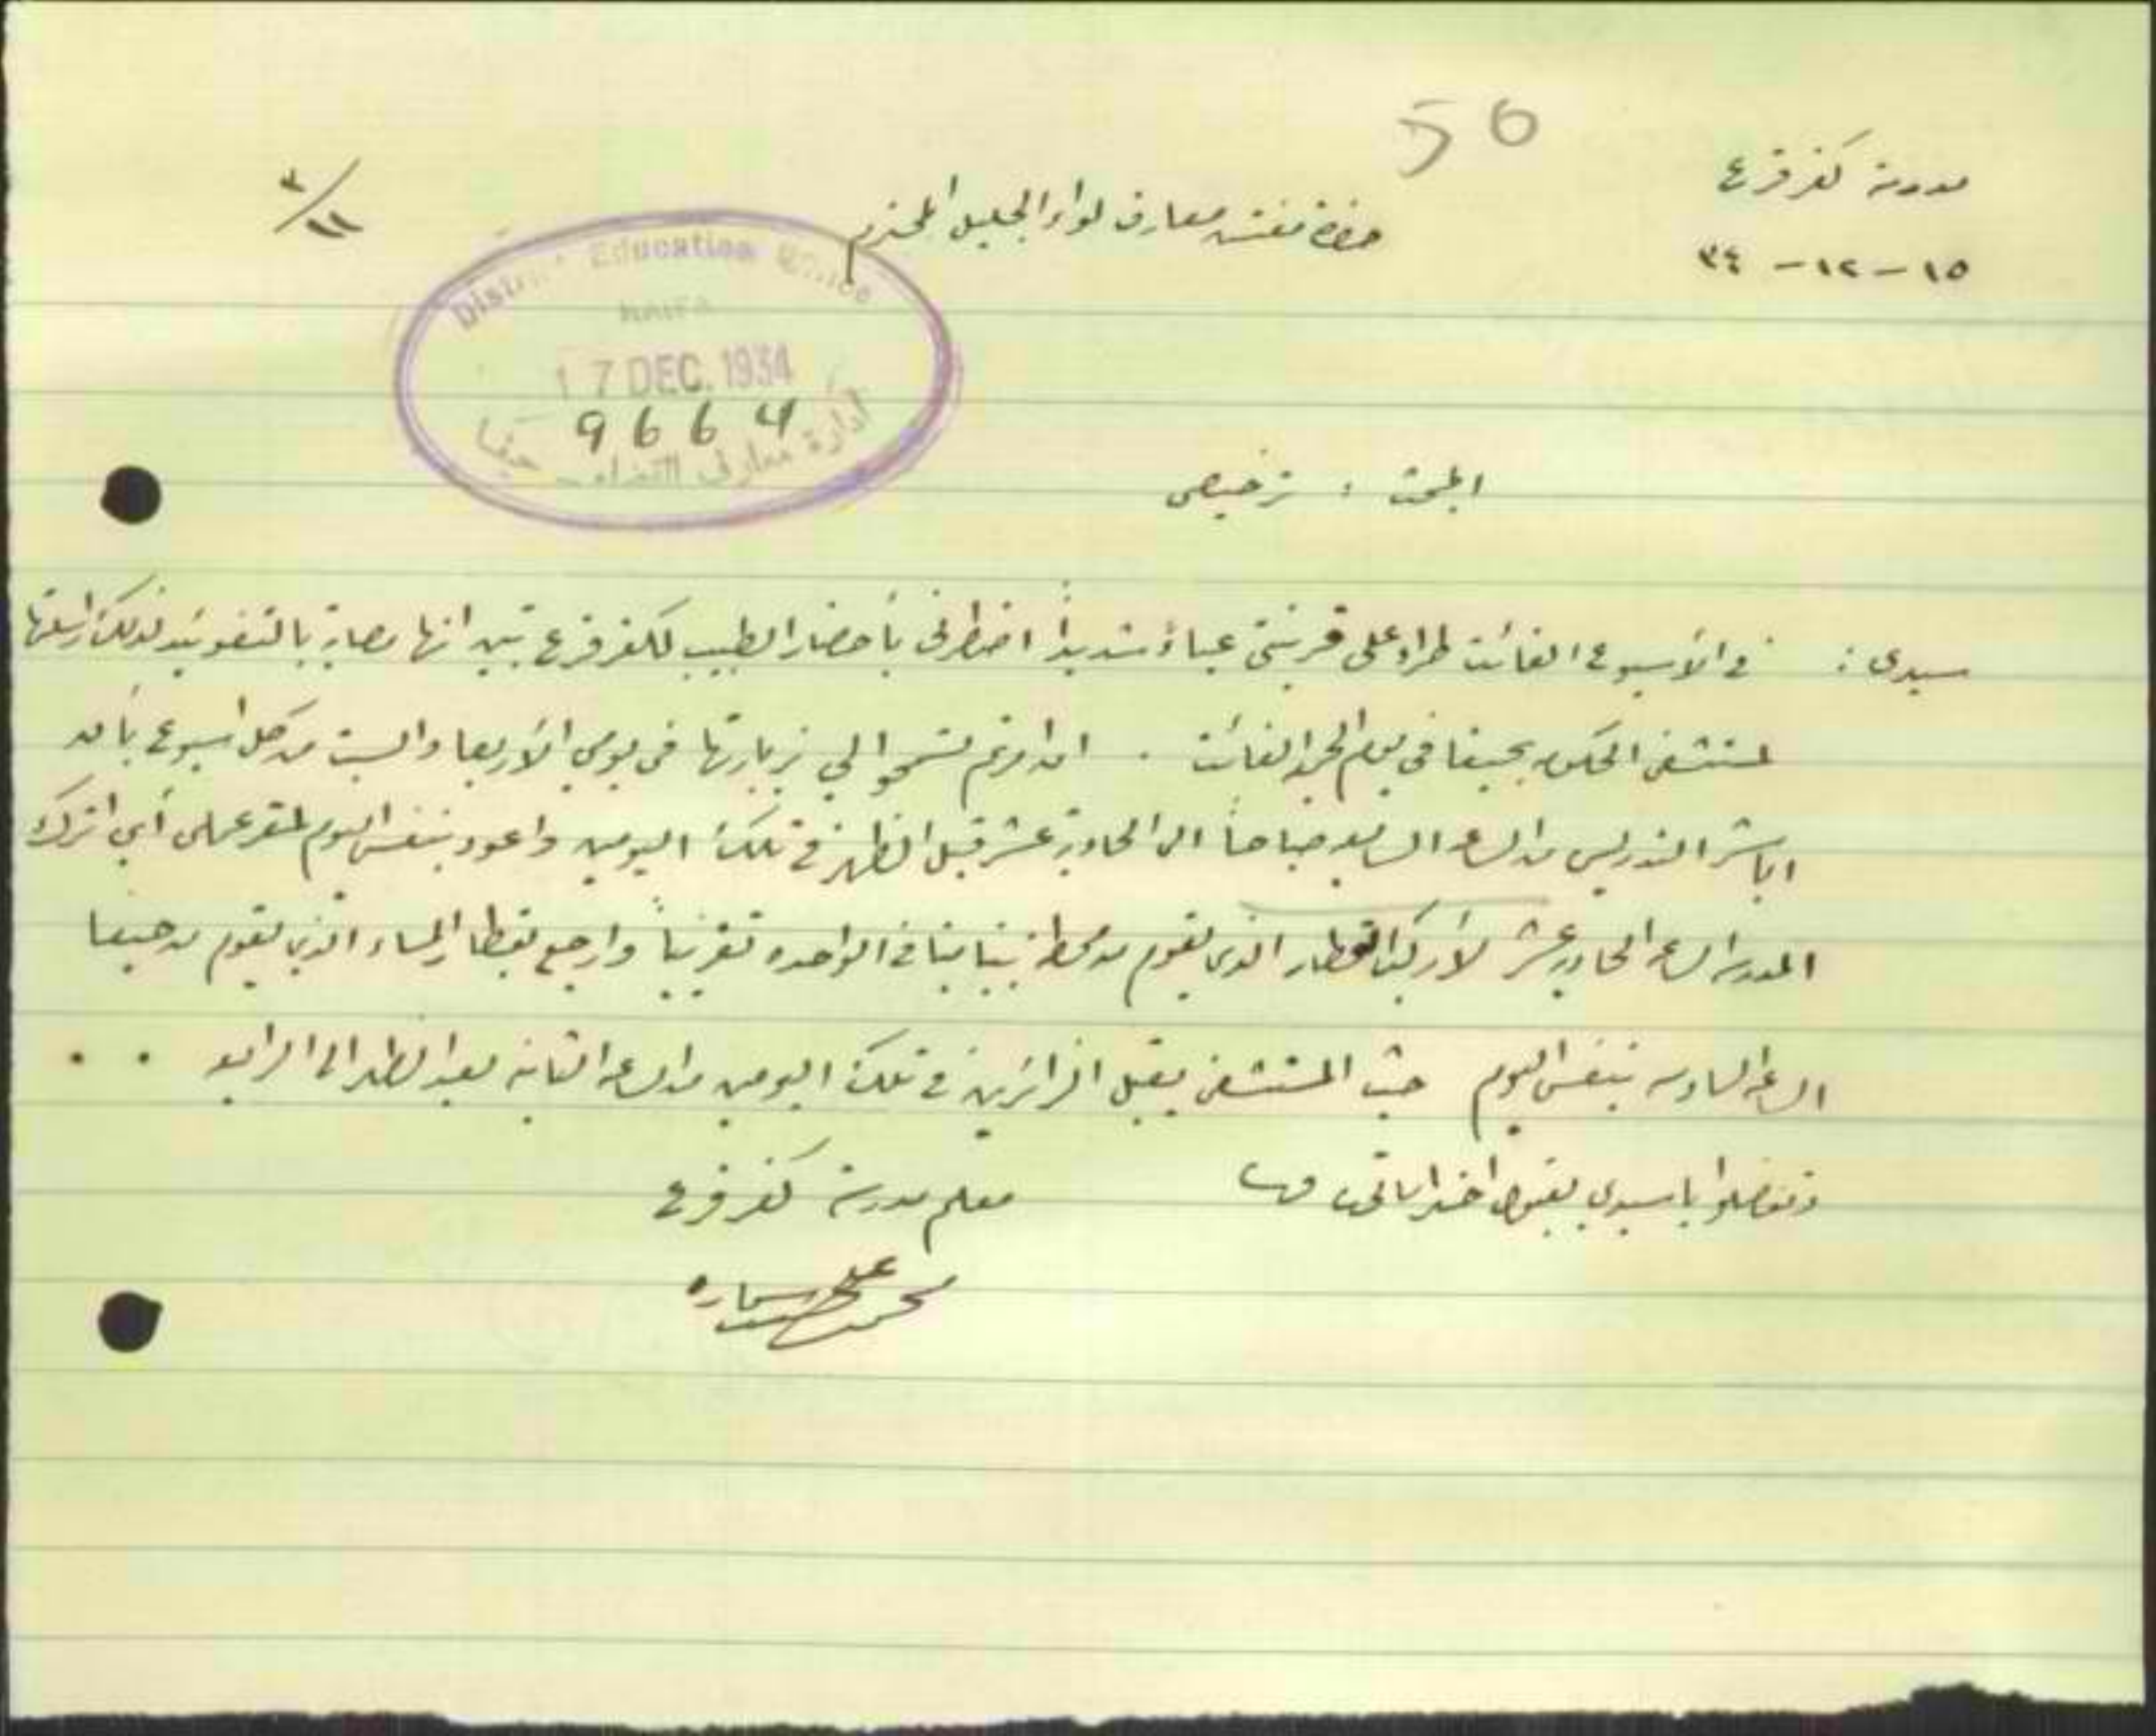 56
مدرسة كفر قرع
١٥ - ١٢ - ٣٤
حضرة مفتش معارف لواء الجليل المحترم
٣/١١
District Education Office
HAIFA
17 DEC. 1934
9664
ادارة معارف القضاء - حيفا
البحث : ترخيص
سيدي : في الأسبوع الفائت طرأ على قرينتي عياءً شديداً اضطرني بأحضار الطبيب لكفر قرع تبين انها مصابة بالتفوئيد لذلك ارسلتها
لمستشفى الحكومه بحيفا في يوم الفائت . تسمحوا لي زيارتها في يومي الأربعا والسبت من كل اسبوع بأن
اباشر التدريس من الساعه السابعه صباحاً الى الحادية عشر قبل الظهر في تلك اليومين واعود بنفس اليوم لمقر عملي أي اترك
المدرسه الساعه الحاديه عشر لأركب القطار الذي يقوم من محطة بنيامينا في الواحده تقريباً وارجع بقطار المساء الذي يقوم من حيفا
الساعه السادسه بنفس اليوم حيث المستشفى يقبل الزائرين في تلك اليومين من الساعه الثانيه بعد الظهر الى الرابعه . .
وتفضلوا يا سيدي بقبول احتراماتي
معلم مدرسة كفر قرع
محمد علي سماره